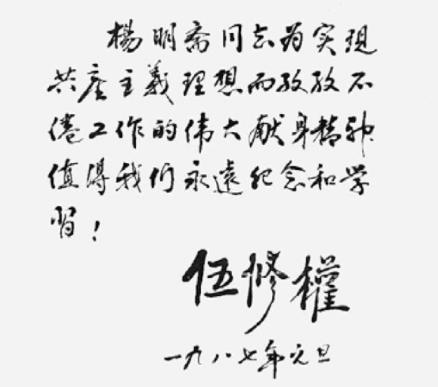 楊明斋同志为实现
共产主義理想而孜孜不
倦工作的伟大献身精神
值得我们永遠纪念和学
習！
伍修權
一九八七年元旦